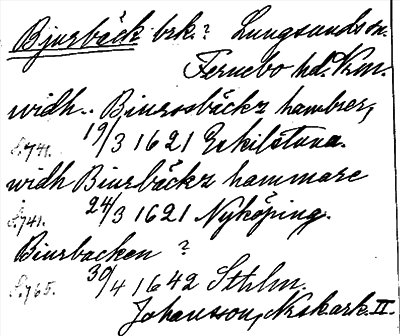 Bjurbäck brk.? Lungsunds sn.
Fernebo hd. Vrm.
widh. Biurssbäckz hambrer,
s. 741. 19/3 1621 Eskilstuna.
widh Biurbäckz hammare
s. 741. 24/3 1621 Nyköping.
Biurbacken ?
s. 765. 30/4 1642 Sthlm.
Johansson, Noraskog II.